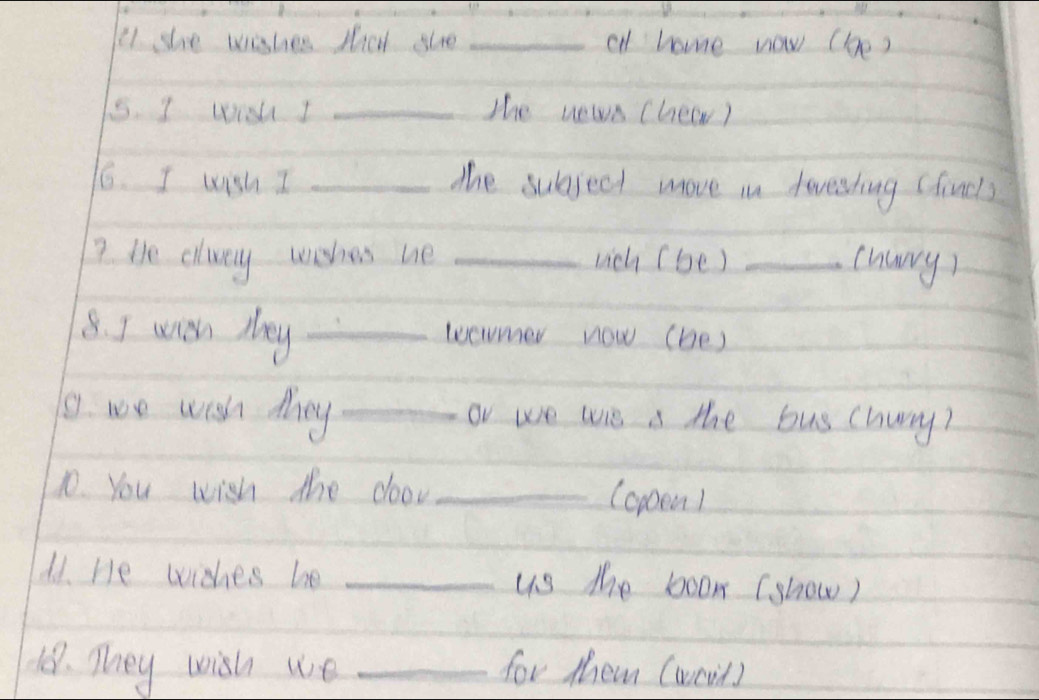 4. she wishes that she ______ at home now (be)
5. I wish I ______ the news (hear)
6. I wish I ______ the subject more in teresting (find)
7. He alway wishes he ______ rich (be) ______ (hurry)
8. I wish they ______ warmer now (be)
9. we wish they ______ or we wis s the bus (hurry)
10. You wish the door ______ (open)
11. He wishes he ______ us the book (show)
12. They wish we ______ for them (wait)